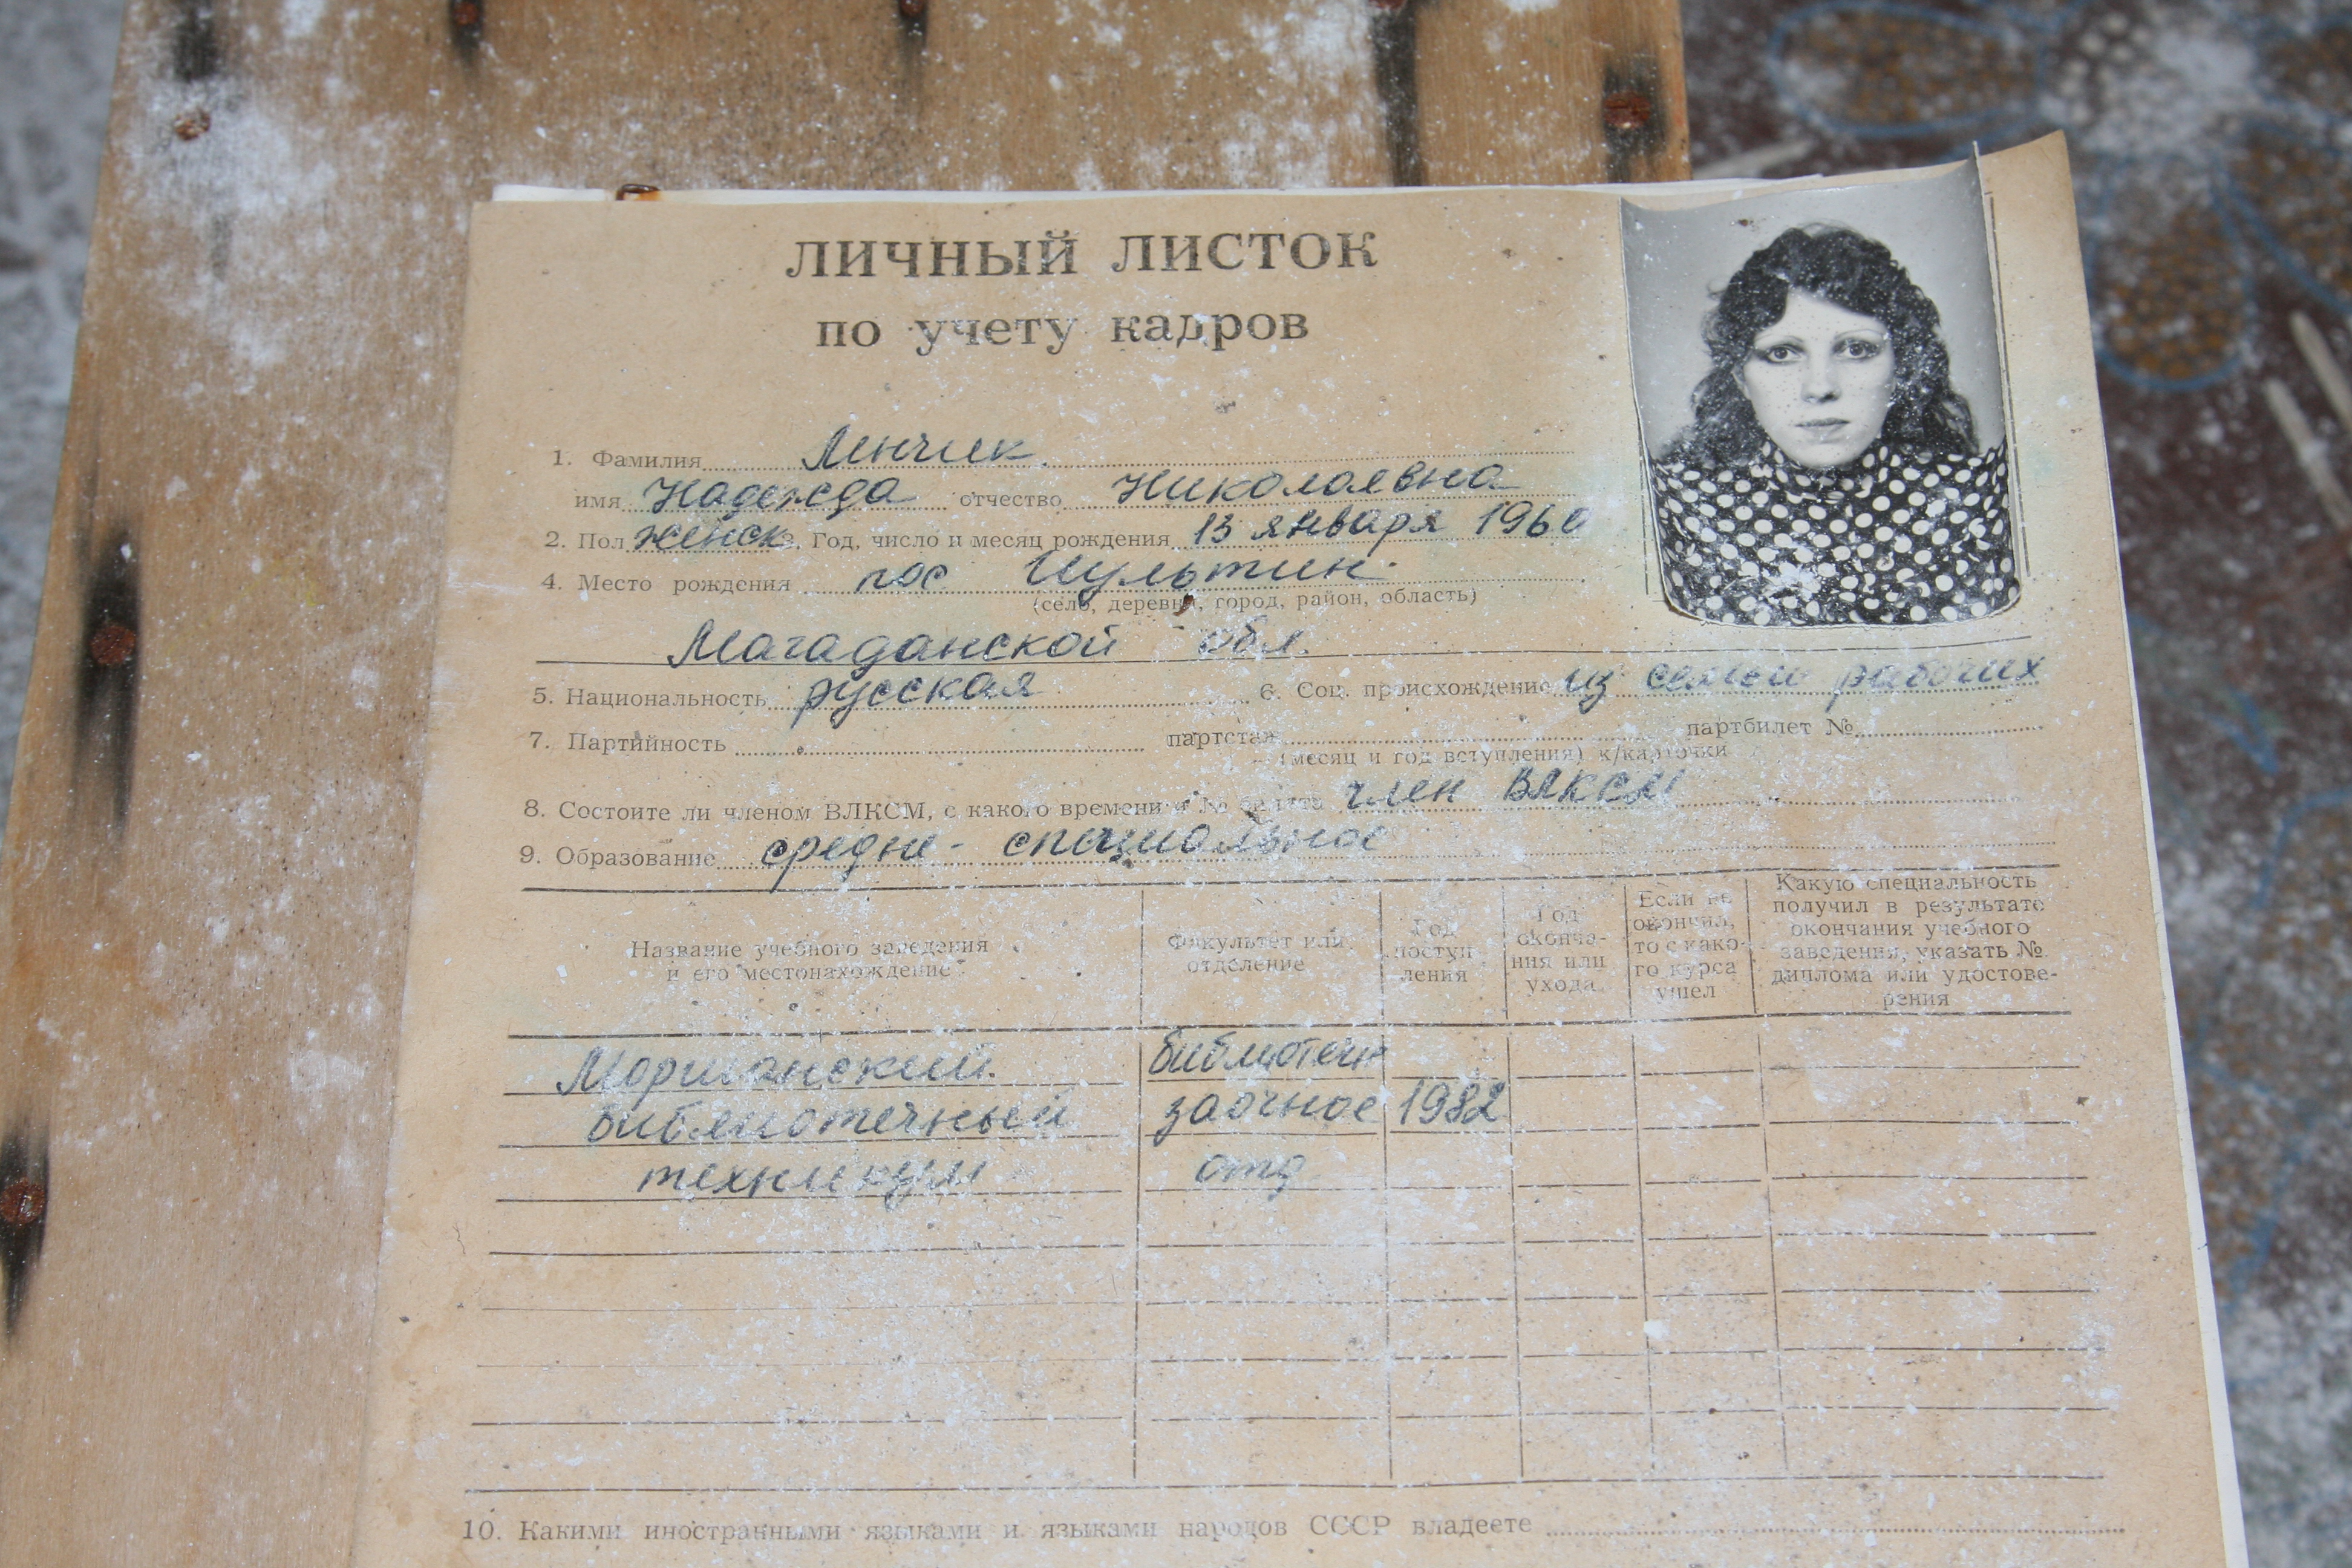 ЛИЧНЫЙ ЛИСТОК
по учету кадров
1. Фамилия Ленчик
имя Надежда отчество Николаевна
2. Пол женск 3. Год, число и месяц рождения 13 января 1960
4. Место рождения пос Иультин
(село, деревня, город, район, область)
Магаданской обл.
5. Национальность русская 6. Соц. происхождение из семьи рабочих
7. Партийность партстаж партбилет №
(месяц и год вступления) к/карточки
8. Состоите ли членом ВЛКСМ, с какого времени и № билета член ВЛКСМ
9. Образование средне-специальное
Название учебного заведения
и его местонахождение
Факультет или
отделение
Год
поступ-
ления
Год
оконча-
ния или
ухода
Если не
окончил,
то с како-
го курса
ушел
Какую специальность
получил в результате
окончания учебного
заведения, указать №
диплома или удостове-
рения
Моршанский библиотечн
библиотечный заочное 1982
техникум отд
10. Какими иностранными языками и языками народов СССР владеете